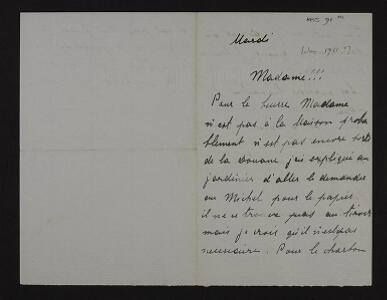 Mardi
Madame!!!
Pour le beurre Madame
n'est pas à la saison proba
blement n'est pas encore sorti
de la Douane j'ai expliqué au
jardinier d'aller le demander
au Michel pour le papier
il ne se trouve pas au tiroir
mais je crois qu'il n'est pas
nécessaire. Pour le charbon